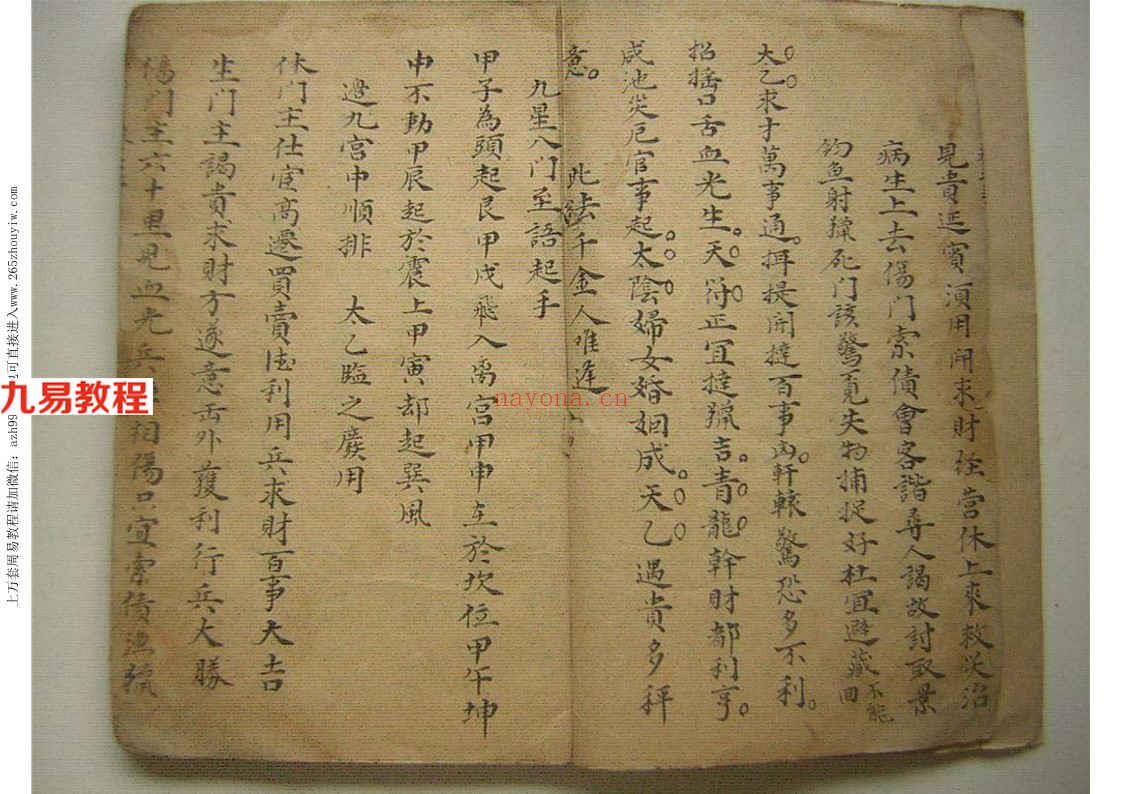 見貴迎賓須用開求財經營休上來救災治
病生上去傷門索債會客諧尋人謁故討取景
釣魚射獵死门該驚覓失物捕捉好杜宜避藏回不能
太乙求才萬事通。摂提開撻百事凶。軒轅驚恐多不利。
招摇口舌血光生。天符正宜撻獵吉。青龍幹財都利亨。
咸池災厄官事起。太陰婦女婚姻成。天乙遇貴多秤
意。 此法千金人唯逢
九星八門至語起手
甲子為頭起艮甲戌飛入离宫甲申立於坎位甲午坤
中不動甲辰起於震上甲寅却起巽風
邉九宫中順排 太乙臨之廣用
休门主仕宦高遷買賣德利用兵求財百事大吉
生门主謁貴求財方遂意击外獲利行兵大勝
傷门主六十里見血光兵 相傷只宜索債漁獵
九易教程
nayona.cn
上万套周易教程请加微信：azh99 也可直接进入www.265zhouyiw.com